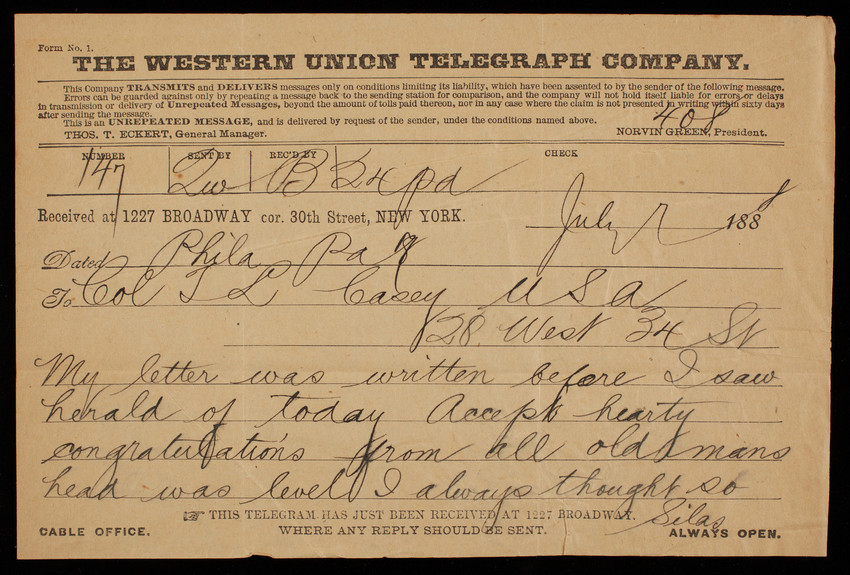 Form No. 1.
THE WESTERN UNION TELEGRAPH COMPANY.
This Company TRANSMITS and DELIVERS messages only on conditions limiting its liability, which have been assented to by the sender of the following message.
Errors can be guarded against only by repeating a message back to the sending station for comparison, and the company will not hold itself liable for errors or delays
in transmission or delivery of Unrepeated Messages, beyond the amount of tolls paid thereon, nor in any case where the claim is not presented in writing within sixty days
after sending the message.
This is an UNREPEATED MESSAGE, and is delivered by request of the sender, under the conditions named above.
408
THOS. T. ECKERT, General Manager. NORVIN GREEN, President.
NUMBER SENT BY REC'D BY CHECK
147 B 24 pd
Received at 1227 BROADWAY cor. 30th Street, NEW YORK. July 7 1888
Dated Phila Pa 7
To Col T L Casey U S A
128 West 34 St
My letter was written before I saw
herald of today Accept hearty
congratulations from all old mans
head was level I always thought so
Silas
THIS TELEGRAM HAS JUST BEEN RECEIVED AT 1227 BROADWAY.
CABLE OFFICE. WHERE ANY REPLY SHOULD BE SENT. ALWAYS OPEN.